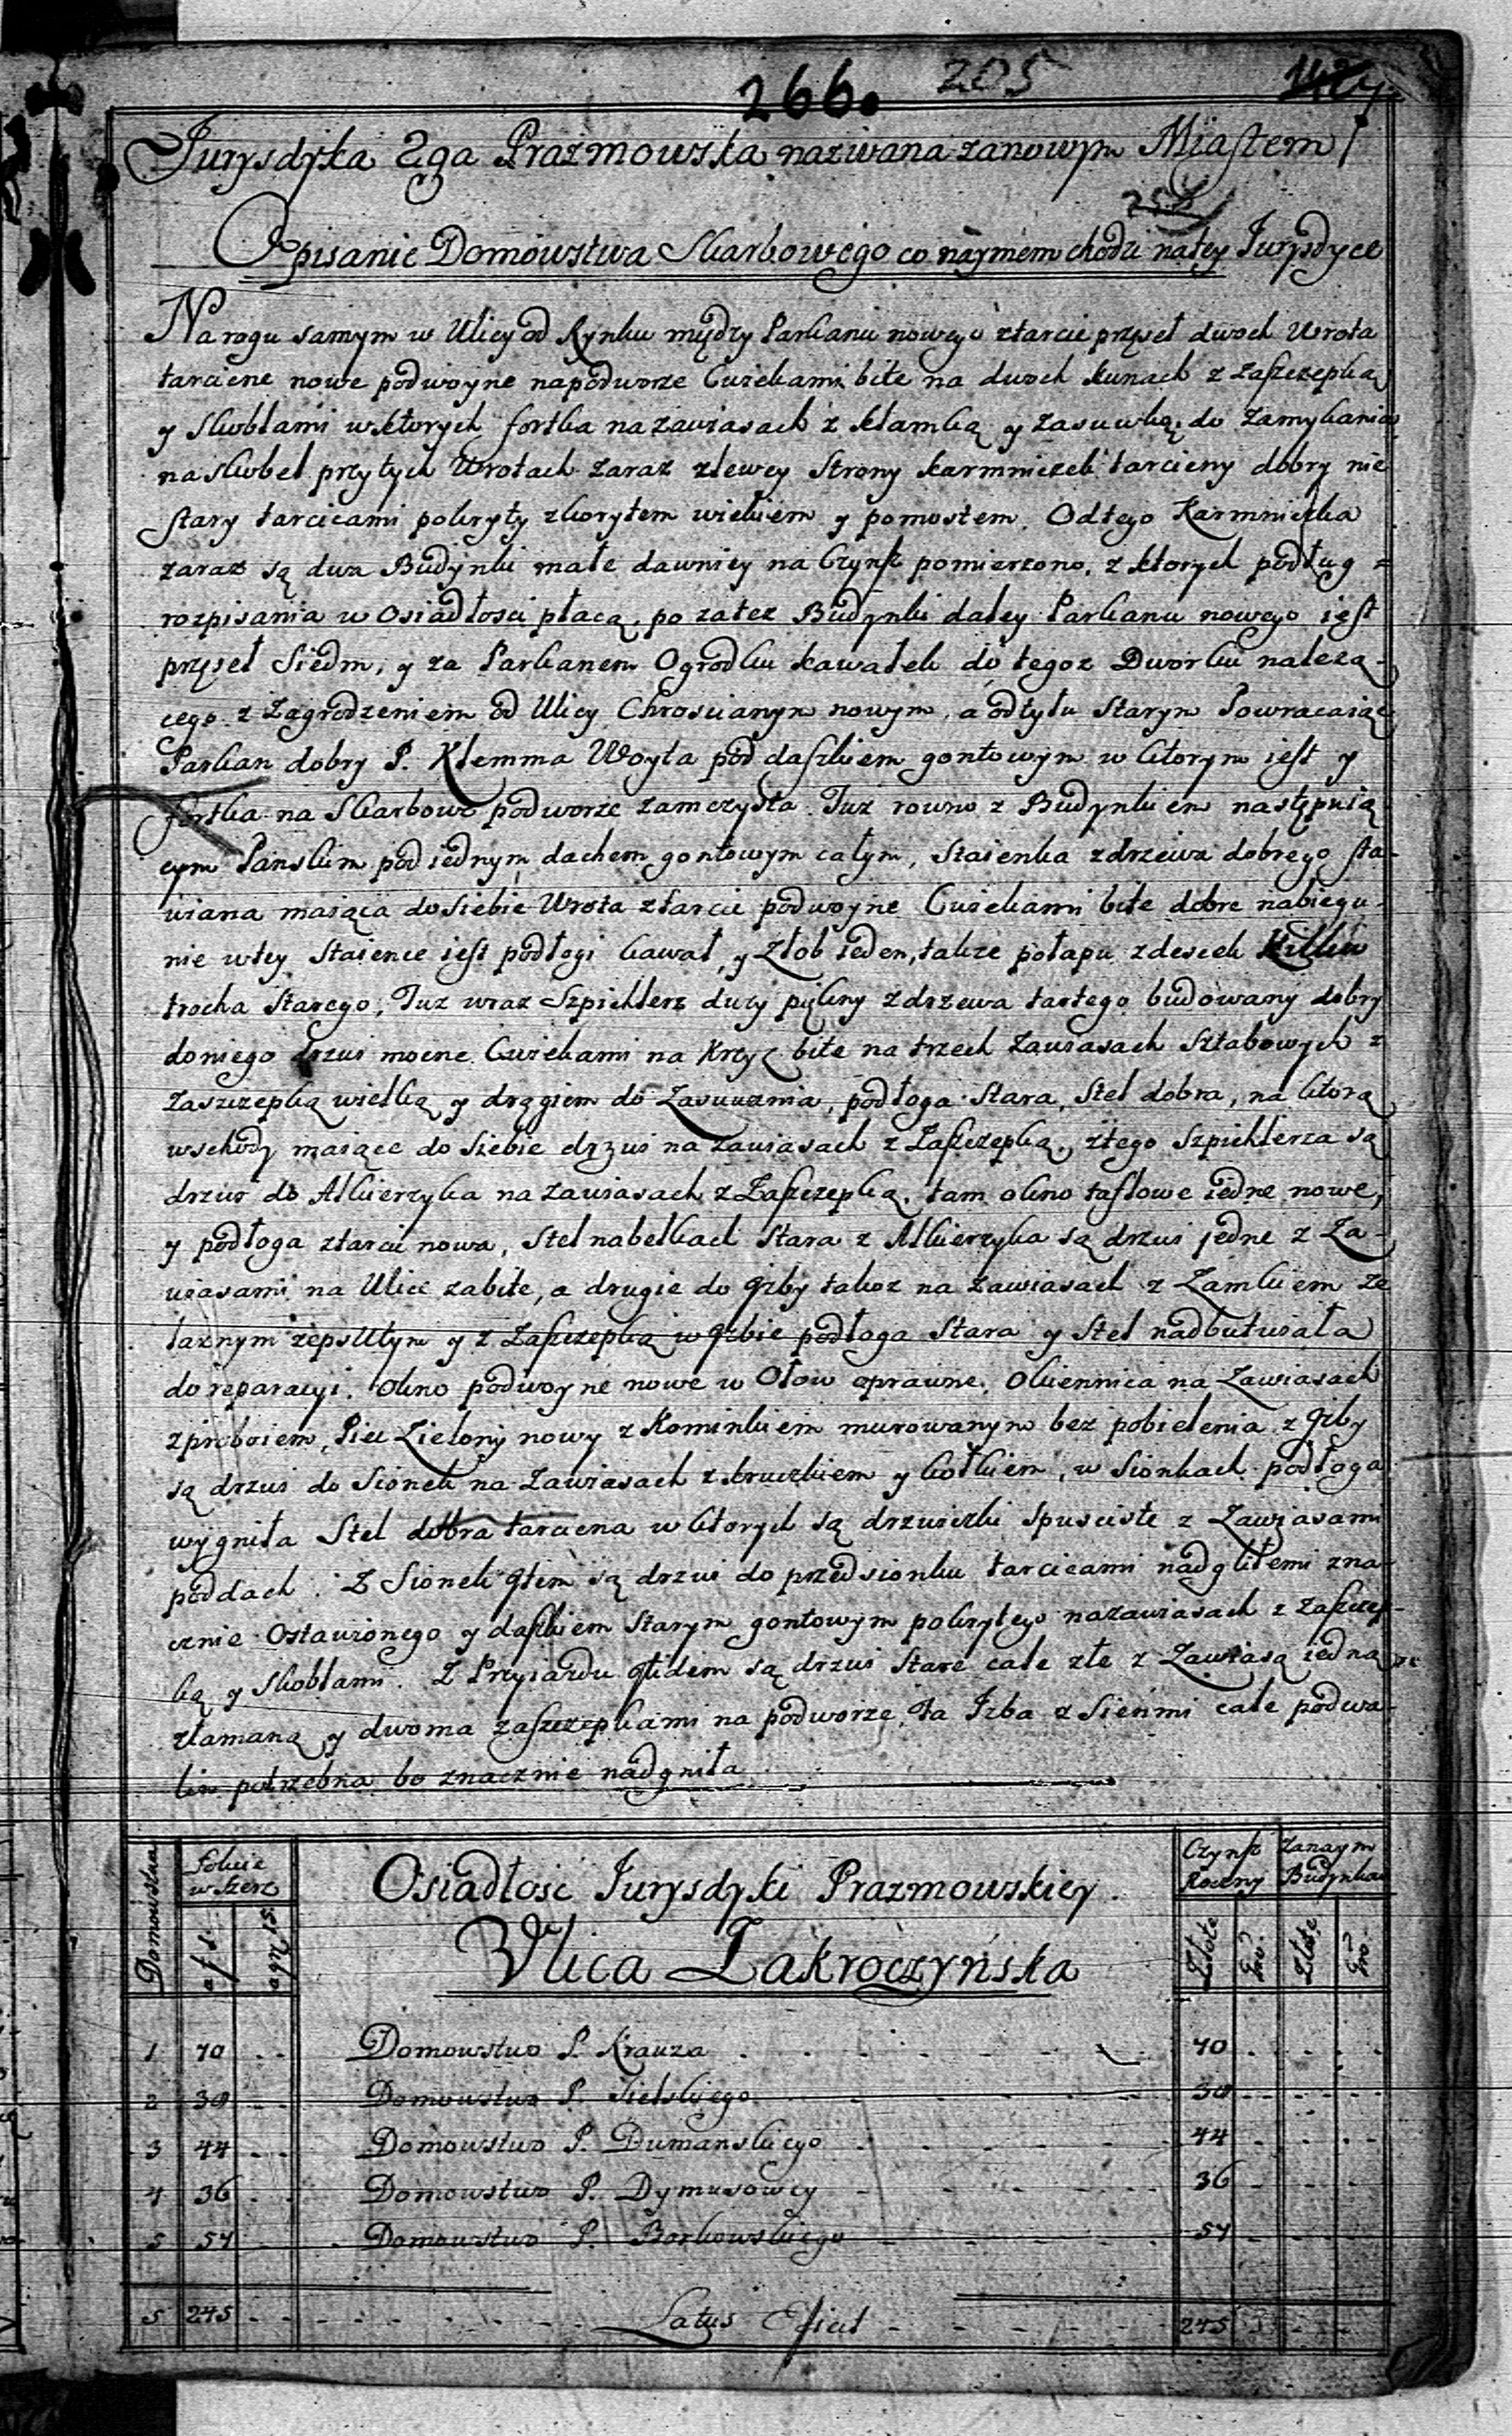 266. 205
Jurysdyka 2ga Prazmowska nazwana zanowym Miastem
Opisanie Domowstwa Skarbowego co naymem chodzi natey Jurysdyce
Na rogu samym w Ulicy od Rynku między Parkanu nowego ztarcic przęseł dwoch Wrota
tarcicne nowe podwoyne napodworze Cwiekami bite na dwoch kunach z zaszczepką
y skoblami wktorych fortka na zawiasach z klamką y zasuwką do zamykania
naskobel przytych Wrotach zaraz zlewey Strony karmniczek tarcicny dobry nie
stary tarcicami pokryty zkorytem wiekiem y pomostem. Odtego Karmniczka
zaraz są dwa Budynki małe dawniey na Czynsz pomierzono, z ktorych podług
rozpisania w Osiadłosci płacą, po zatez Budynki daley Parkanu nowego iest
przęseł Siedm, y za Parkanem Ogrodku kawałek do tegoz Dworku nalezą-
cego z Zagrodzeniem od Ulicy Chroscianym nowym, a odtyłu Starym Powracaiąc
Parkan dobry P. Klemma Woyta pod daszkiem gontowym w ktorym iest y
fortka na Skarbowe podworze zamczysta. Tuz rowno z Budynkiem następuią-
cym Panskim pod iednym dachem gontowym całym, Staienka zdrzewa dobrego sta-
wiana maiąca dosiebie Wrota ztarcic podwoyne Cwiekami bite dobre nabiegu-
nie wtey Staience iest podłogi kawał, y Złob ieden, takze połapu zdesek Kilku
trocha Starego, Tuz wraz Szpichlerz duzy piękny zdrzewa tartego budowany dobry
doniego drzwi mocne Cwiekami na Krzyz bite na trzech Zawiasach Sztabowych z
Zaszczepką wielką y drągiem do Zasuwania, podłoga Stara, Stel dobra, na ktorą
wschody maiące do Siebie drzwi na zawiasach z Zaszczepką, ztego Szpichlerza są
drzwi do Alkierzyka na zawiasach z Zaszczepką, tam okno taflowe iedne nowe,
y podłoga ztarcic nowa, Stel nabelkach Stara z Alkierzyka są drzwi jedne z Za-
wiasami na Ulice zabite, a drugie do Izby takoz na zawiasach z Zamkiem że
laznym zepsutym y z Zaszczepką w Izbie podłoga Stara y Stel nadbutwiała
do reparacyi. Okno podwoyne nowe w Ołow oprawne, Okiennica na Zawiasach
zproboiem, Piec Zielony nowy z Kominkiem murowanym bez pobielenia z Izby
są drzwi do Sionek na Zawiasach z kruczkiem y kołkiem, w Sionkach podłoga
wygniła Stel dobra tarcicna w ktorych są drzwiczki spusciste z Zawiasami
poddach. Z Sionek są drzwi do przedsionku tarcicami nadgniłemi zna-
cznie Ostawionego y daszkiem Starym gontowym pokrytego nazawiasach z Zaszczep-
ką y Skoblami. Z Przyiazdu są drzwi Stare całe złe z Zawiasą iedną
złamaną y dwoma zaszczepkami na podworze, Ta Izba z Sienmi całe podwa-
lin potrzebna bo znacznie nadgniła
Domowstwa
Łokcie wszerz
a fl 1.
a gr 15.
Osiadłosc Jurysdyki Prazmowskiey.
Vlica Zakroczyńska
Czynsz Roczny
Zanaym Budynkow
Złote
Gro.
Złote
Gro.
1 70 Domowstwo P. Krauza 70
2 30 Domowstwo P. Sielskiego 30
3 44 Domowstwo P. Dumanskiego 44
4 36 Domowstwo P. Dymusowey 36
5 57 Domowstwo P. Borkowskiego 57
5 245 Latus Eficit 245